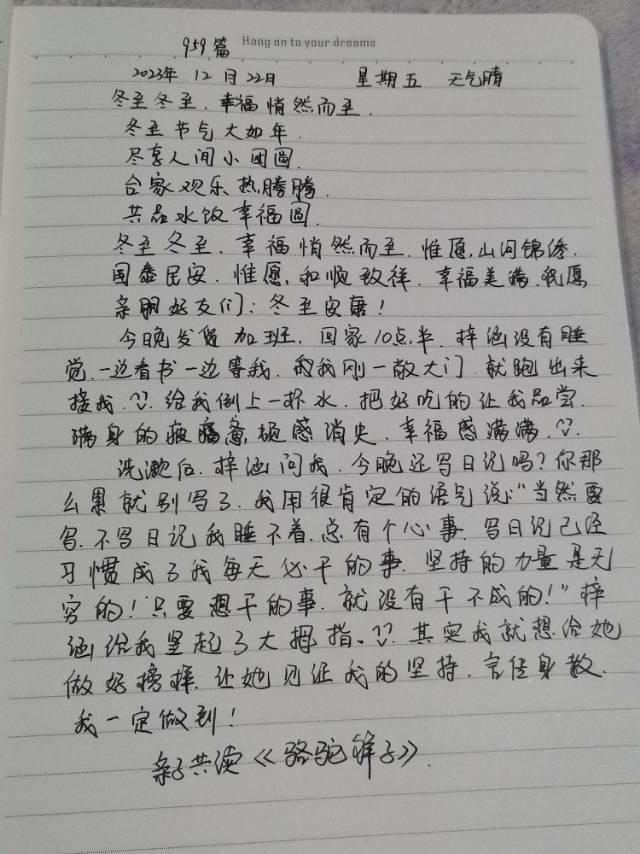 959篇 Hang on to your dreams
2023年 12月22日 星期五 天气晴
冬至冬至.幸福悄然而至.
冬至节气大如年.
尽享人间小团圆.
合家欢乐热腾腾.
共品水饺幸福圆.
冬至冬至.幸福悄然而至.惟愿,山河锦绣.
国泰民安.惟愿,和顺致祥.幸福美满.祝愿
亲朋好友们:冬至安康!
今晚发货加班.回家10点半.梓涵没有睡
觉.一边看书一边等我.我刚一敲大门.就跑出来
接我.给我倒上一杯水.把好吃的让我品尝.
满身的疲惫感消失.幸福感满满.
洗漱后.梓涵问我.今晚还写日记吗?你那
么累就别写了.我用很肯定的语气说:"当然要
写.不写日记我睡不着.总有个心事.写日记已经
习惯成了我每天必干的事.坚持的力量是无
穷的!只要想干的事.就没有干不成的!"梓
涵给我竖起了大拇指.其实我就想给她
做好榜样.让她见证我的坚持.言传身教.
我一定做到!
亲子共读《骆驼祥子》.